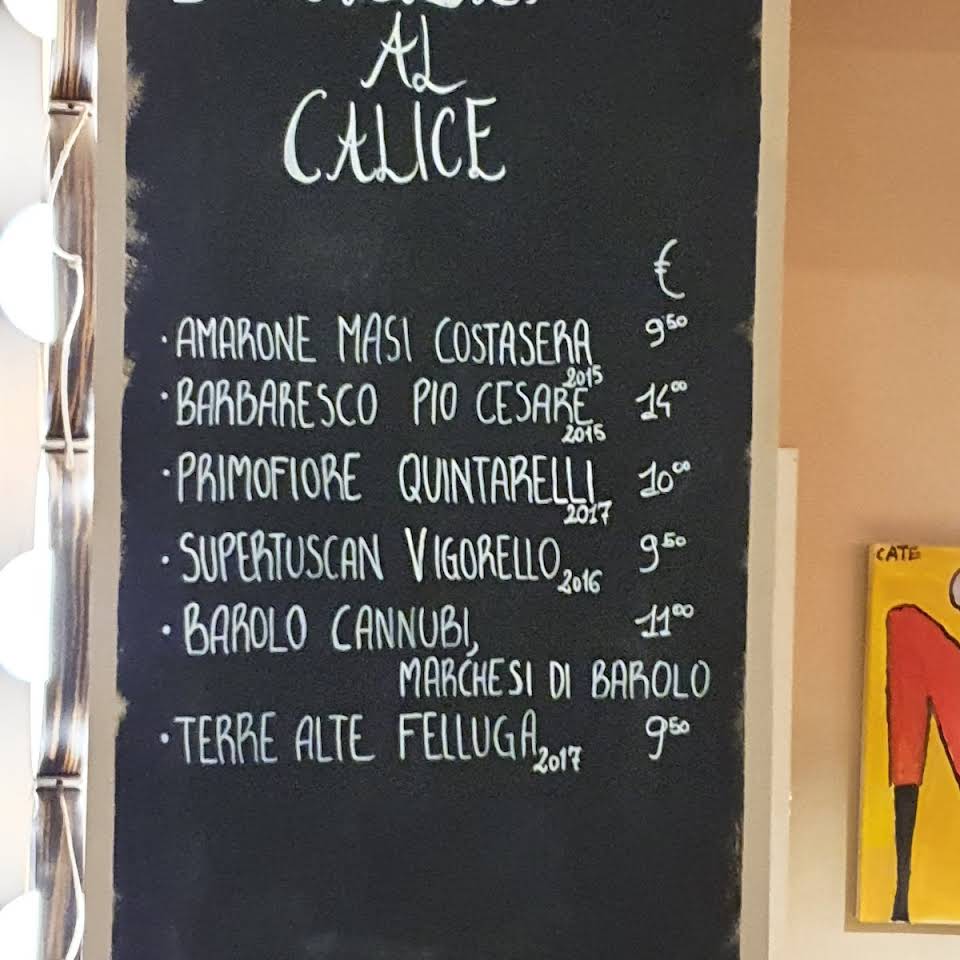 AL
CALICE
€
· AMARONE MASI COSTASERA 2015 9⁵⁰
· BARBARESCO PIO CESARE 2015 14⁰⁰
· PRIMOFIORE QUINTARELLI 2017 10⁰⁰
· SUPERTUSCAN VIGORELLO 2016 9⁵⁰
· BAROLO CANNUBI, 11⁰⁰
MARCHESI DI BAROLO
· TERRE ALTE FELLUGA 2017 9⁵⁰
CATE